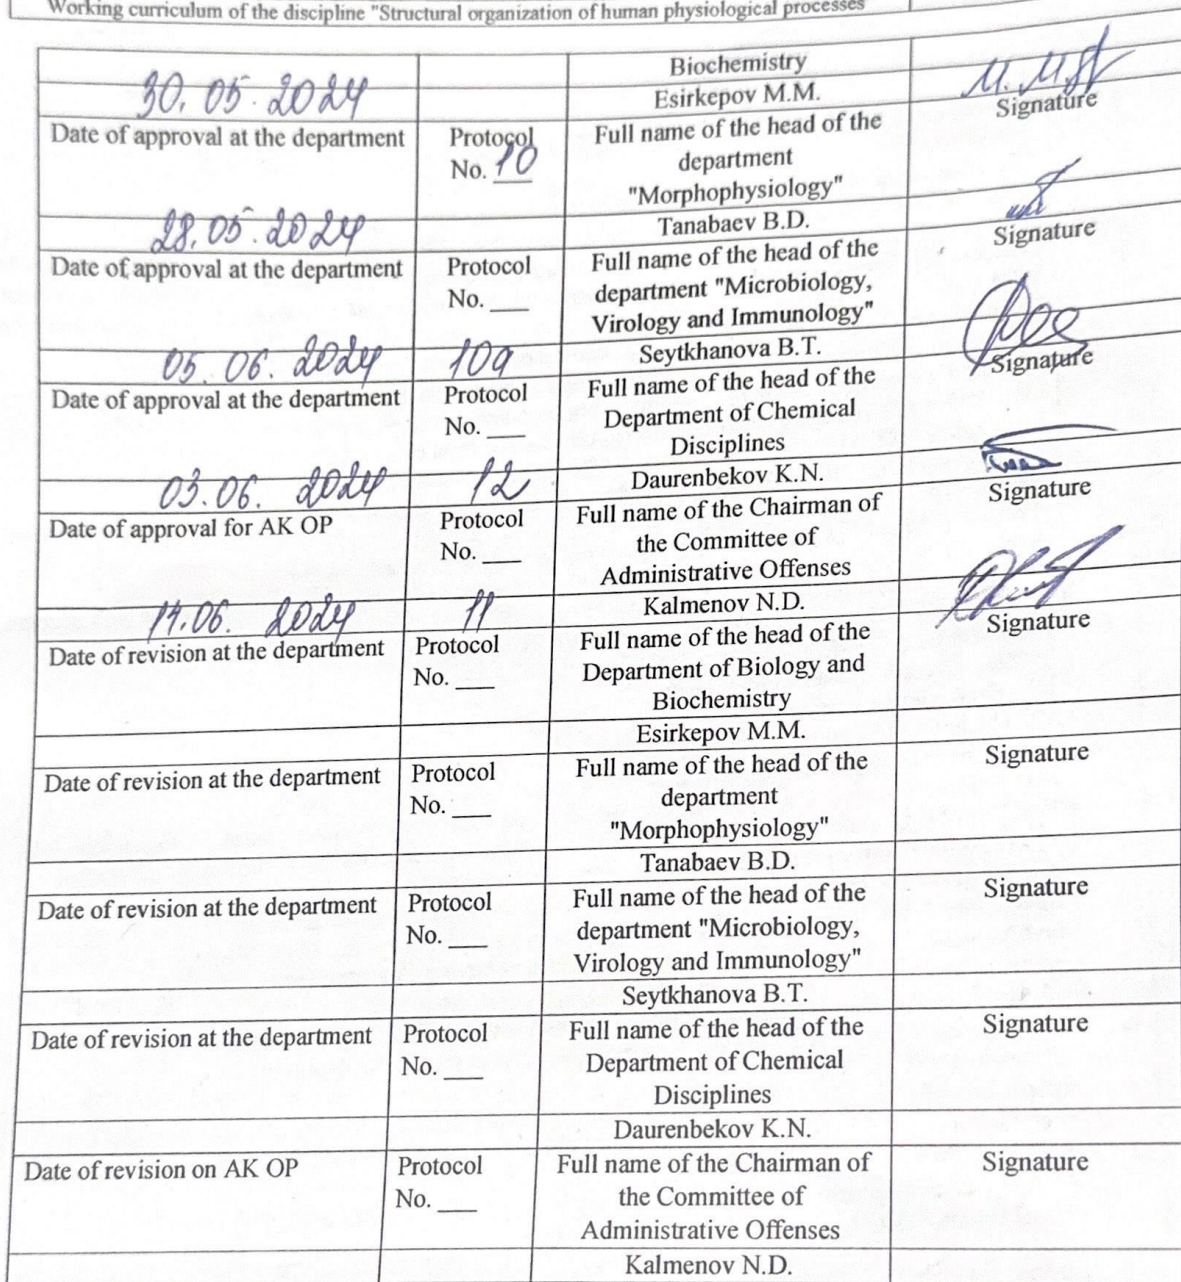 Working curriculum of the discipline "Structural organization of human physiological processes
Biochemistry
30.05.2024 Esirkepov M.M. Signature
Date of approval at the department Protocol Full name of the head of the
No. 10 department
"Morphophysiology"
28.05.2024 Tanabaev B.D. Signature
Date of approval at the department Protocol Full name of the head of the
No. ___ department "Microbiology,
Virology and Immunology"
05.06.2024 10a Seytkhanova B.T. Signature
Date of approval at the department Protocol Full name of the head of the
No. ___ Department of Chemical
Disciplines
03.06.2024 12 Daurenbekov K.N. Signature
Date of approval for AK OP Protocol Full name of the Chairman of
No. ___ the Committee of
Administrative Offenses
06.2024 11 Kalmenov N.D. Signature
Date of revision at the department Protocol Full name of the head of the
No. ___ Department of Biology and
Biochemistry
Esirkepov M.M.
Date of revision at the department Protocol Full name of the head of the Signature
No. ___ department
"Morphophysiology"
Tanabaev B.D.
Date of revision at the department Protocol Full name of the head of the Signature
No. ___ department "Microbiology,
Virology and Immunology"
Seytkhanova B.T.
Date of revision at the department Protocol Full name of the head of the Signature
No. ___ Department of Chemical
Disciplines
Daurenbekov K.N.
Date of revision on AK OP Protocol Full name of the Chairman of Signature
No. ___ the Committee of
Administrative Offenses
Kalmenov N.D.